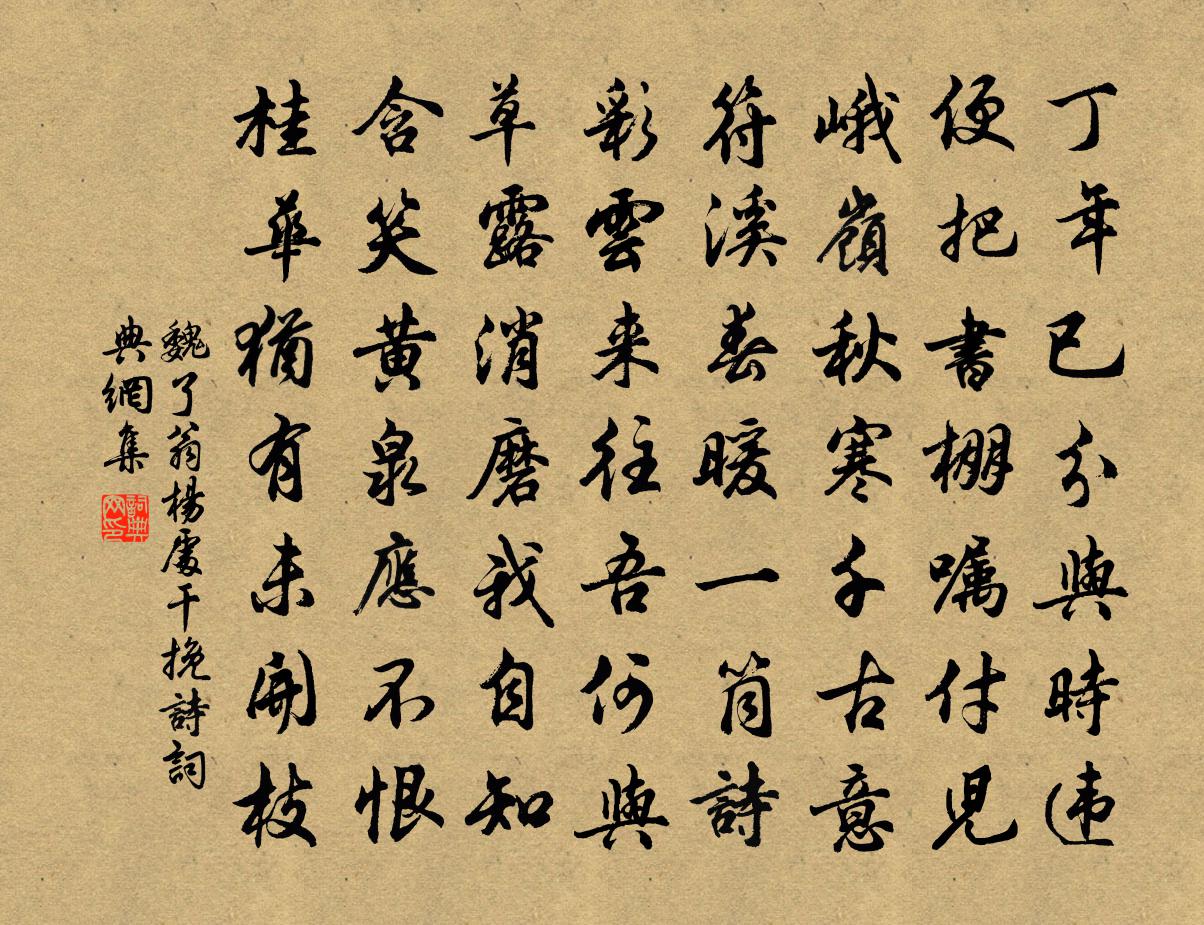 丁年已分與時違
便把書棚嘱付兒
峨嶺秋寒千古意
符溪春暖一筒詩
彩雲来往吾何與
草露消磨我自知
含笑黄泉應不恨
桂華猶有未開枝
魏了翁楊處干挽詩詞
典網集
詞典網印